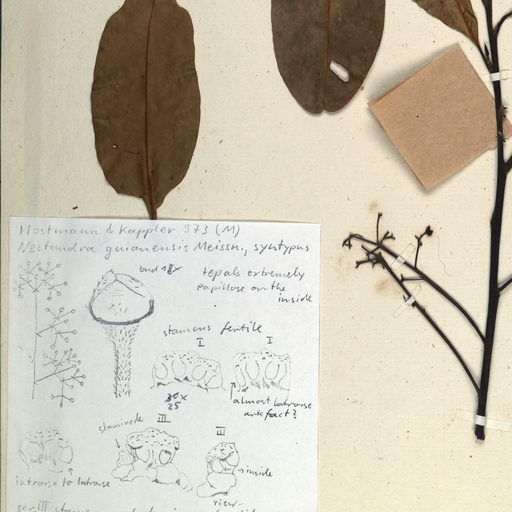 Hostmann & Kappler 973 (M)
Nectandra guianensis Meissn., syntypus
bud
tepals extremely
papillose on the
inside
stamens fertile
I I
30x
25
almost latrorse
artefact?
staminode III
III
inside
introrse to latrorse
view-
III